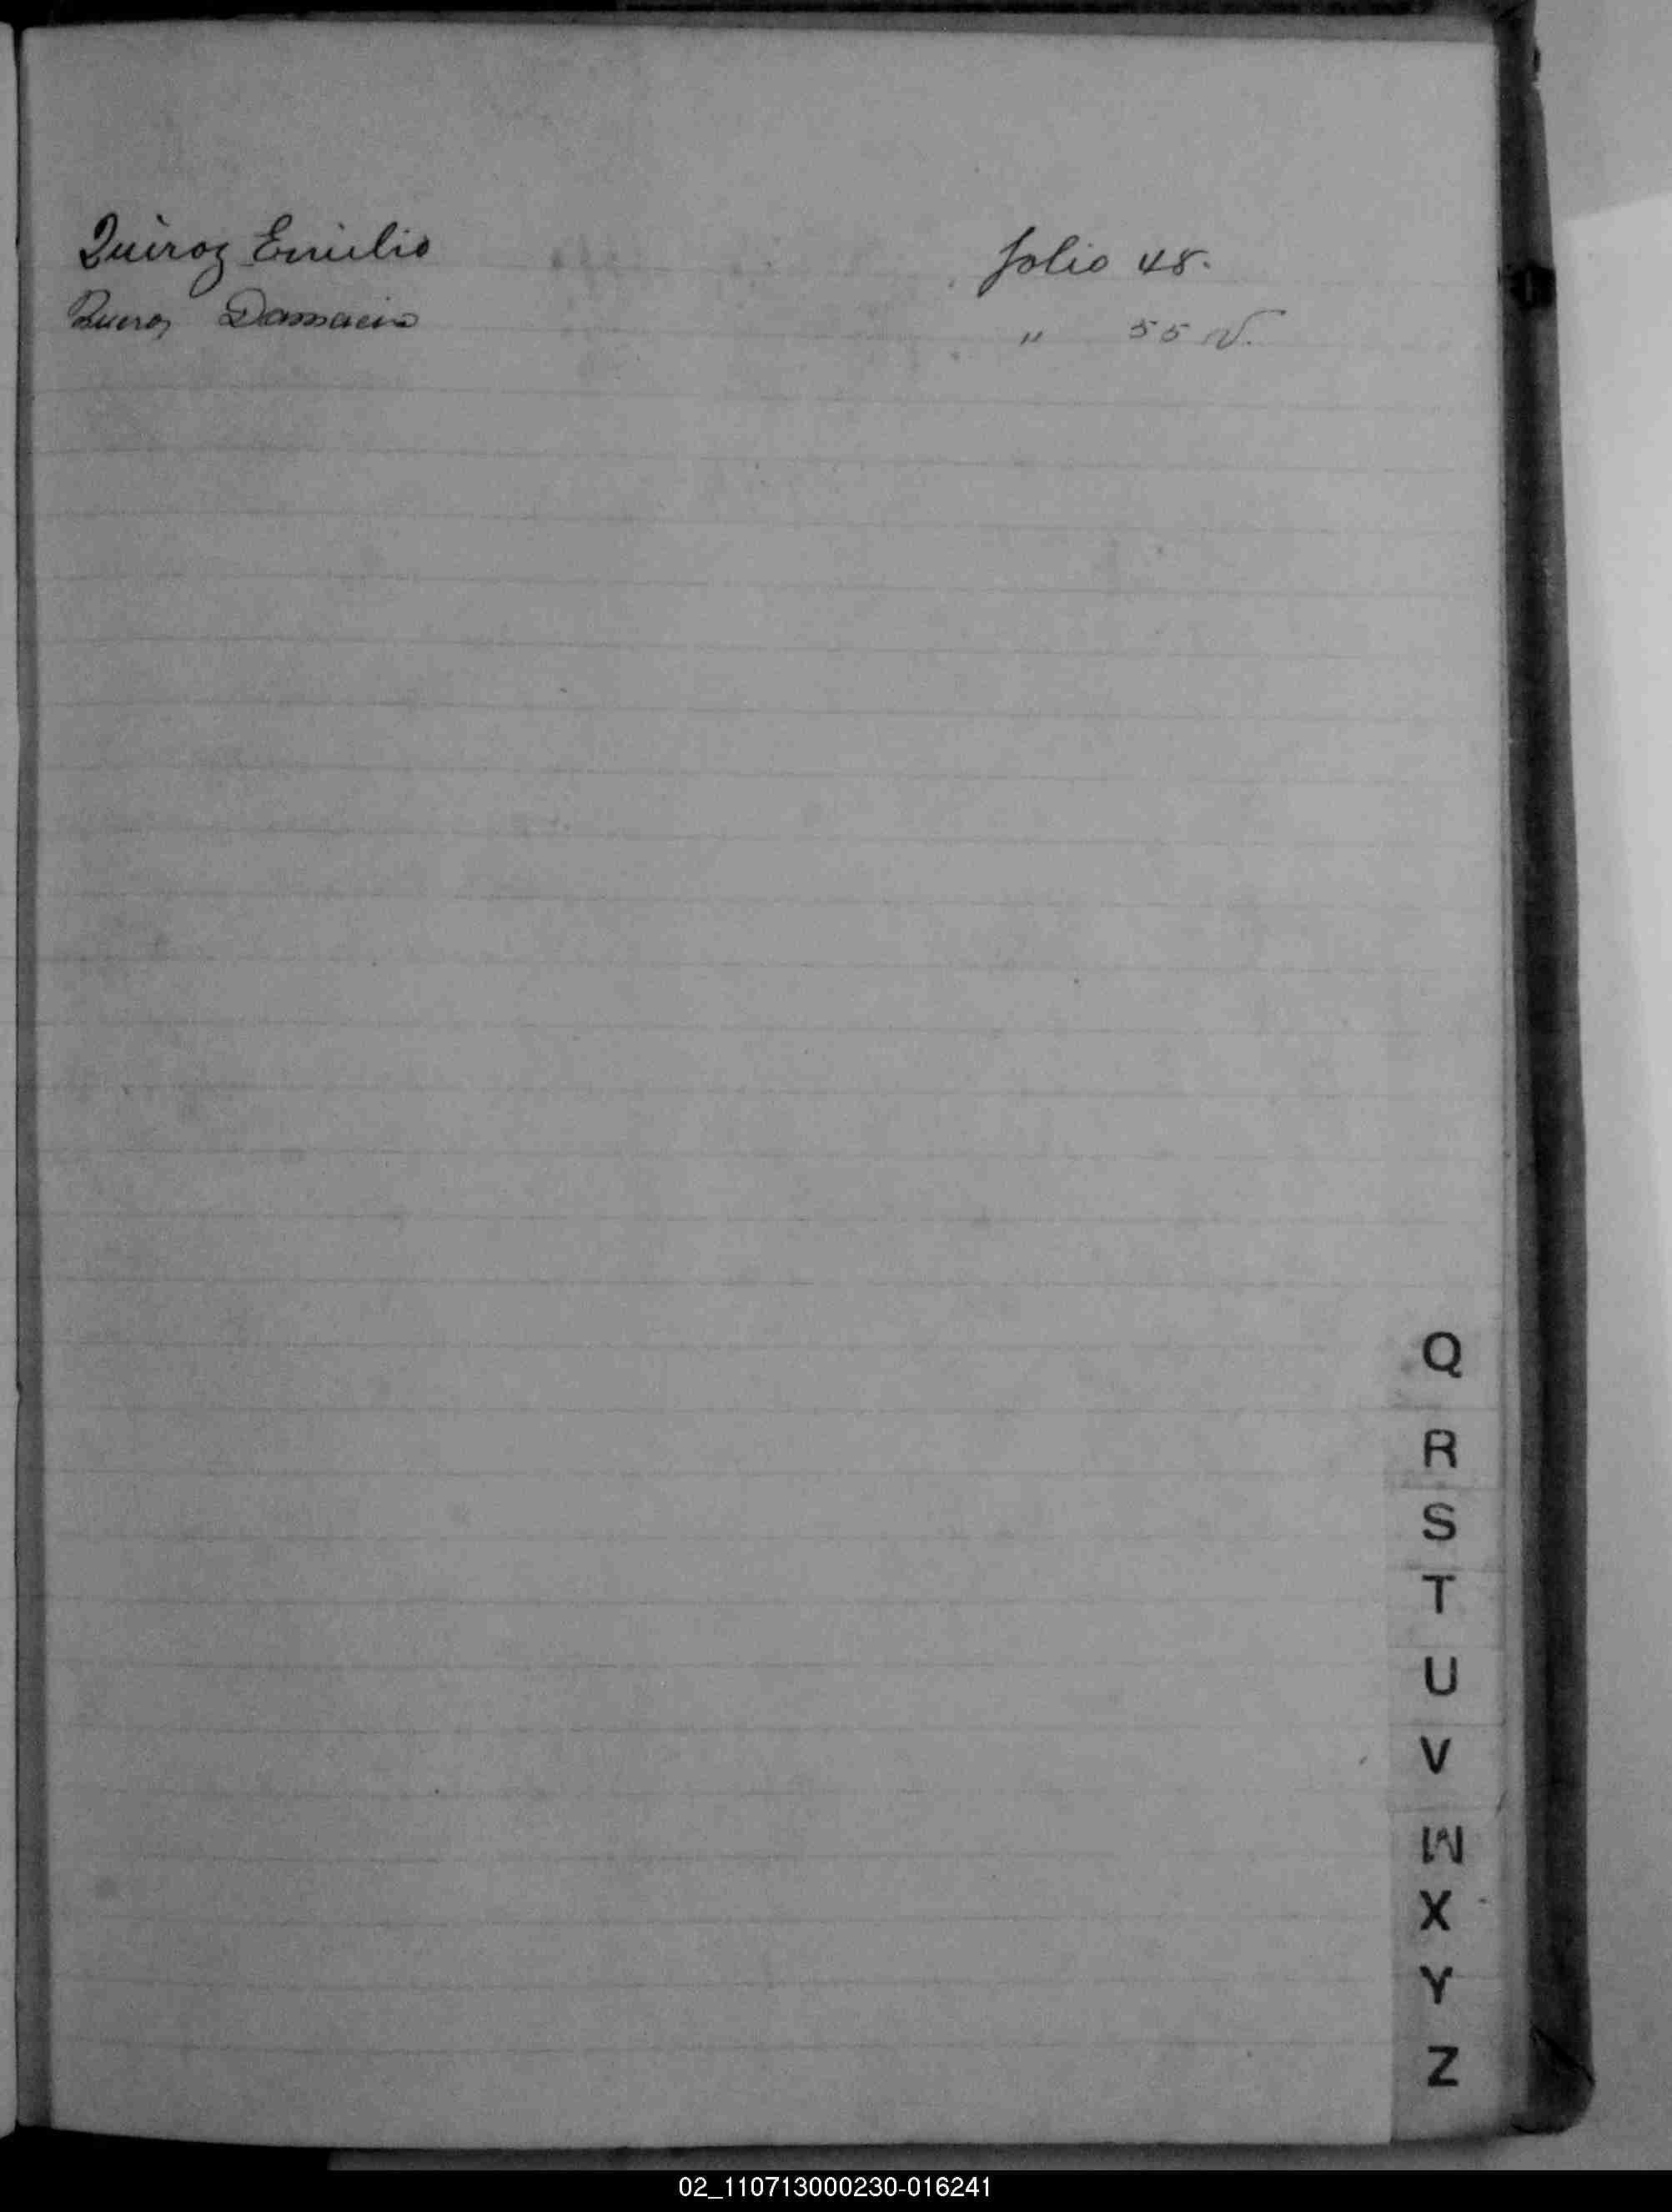 Quiroz Emilio folio 48.
Quiroz Damacio " 55 V.
Q
R
S
T
U
V
W
X
Y
Z
02_110713000230-016241